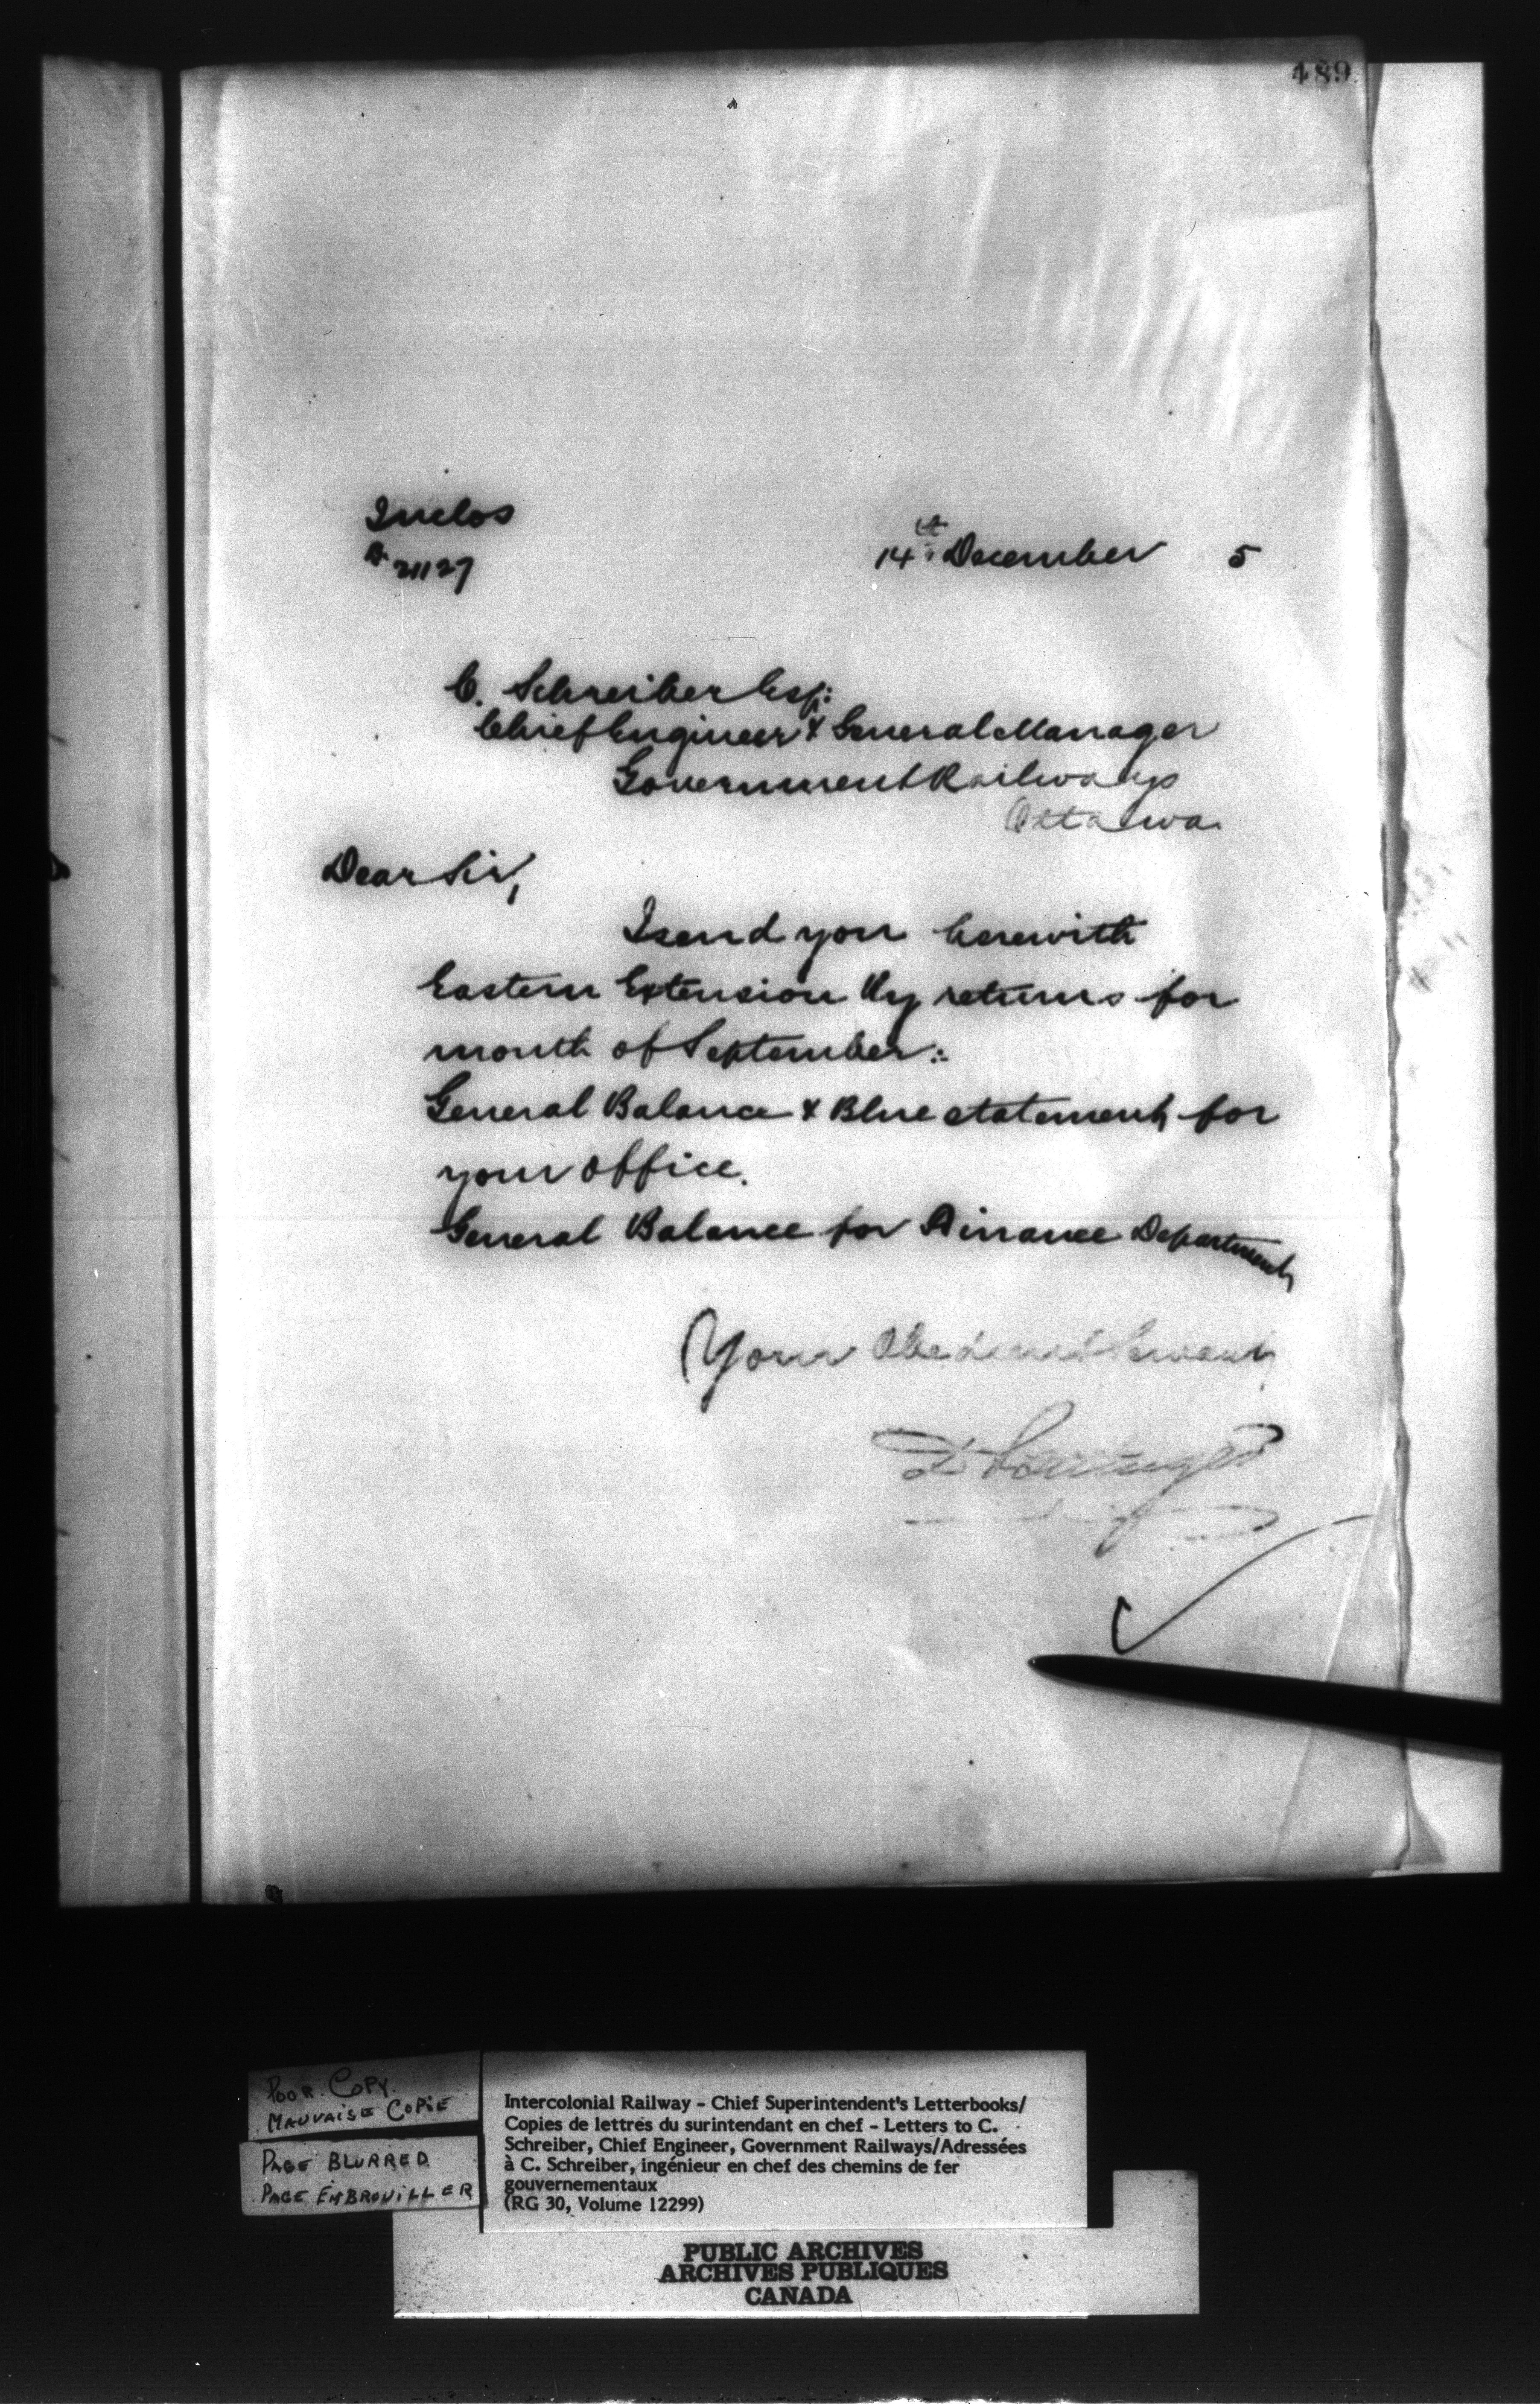 489
Inclos
14th December 5
21127
C. Schreiber Esq:
Chief Engineer & General Manager
Government Railways
Ottawa.
Dear Sir,
I send you herewith
Eastern Extension Ry returns for
month of September:
General Balance & Blue statement for
your office.
General Balance for Finance Department
Your Obedient Servant
POOR COPY.
MAUVAISE COPIE
PAGE BLURRED
PAGE EMBROUILLER
Intercolonial Railway - Chief Superintendent's Letterbooks/
Copies de lettres du surintendant en chef - Letters to C.
Schreiber, Chief Engineer, Government Railways/Adressées
à C. Schreiber, ingénieur en chef des chemins de fer
gouvernementaux
(RG 30, Volume 12299)
PUBLIC ARCHIVES
ARCHIVES PUBLIQUES
CANADA